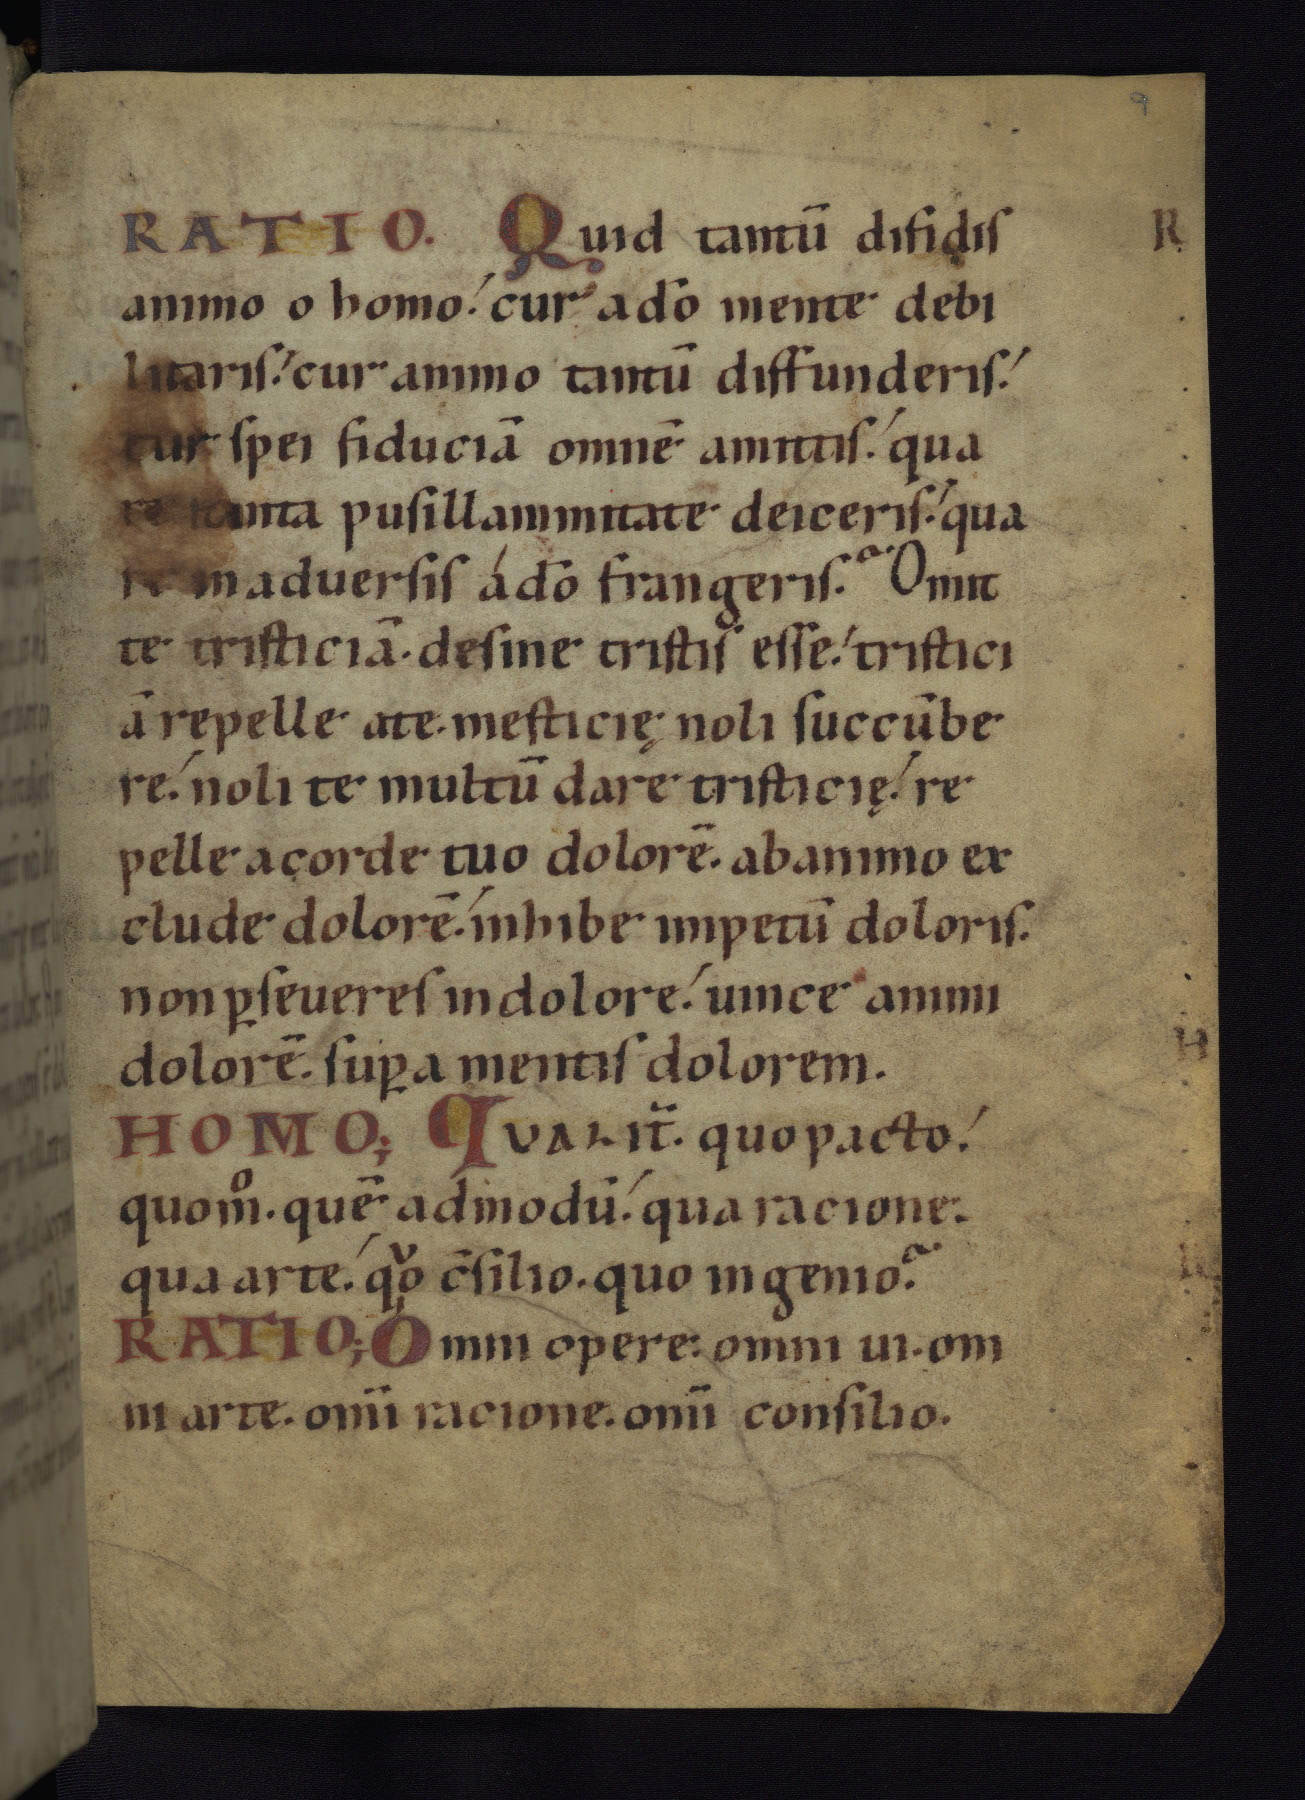 9
RATIO. Quid tantū difidis R.
animo o homo. cur adō mente debi
litaris. cur animo tantū diffunderis.
cur spei fiduciā omnē amittis. qua
re tanta pusillanimitate deiceris. qua
re in aduersis adō frangeris. Omit
te tristiciā. desine tristis esse. tristici
ā repelle ate. mesticię noli succūbe
re. noli te multū dare tristicię. re
pelle acorde tuo dolorē. abanimo ex
clude dolorē. inhibe impetū doloris.
non ꝑseueres indolore. uince animi
dolorē. suꝑa mentis dolorem. H
HOMO; Qualit̄. quopacto.
quom̊. quē admodū. qua racione.
qua arte. qͮo c̄silio. quo ingenio.
RATIO; Omni opere. omni ui. om
ni arte. om̄i racione. om̄i consilio.